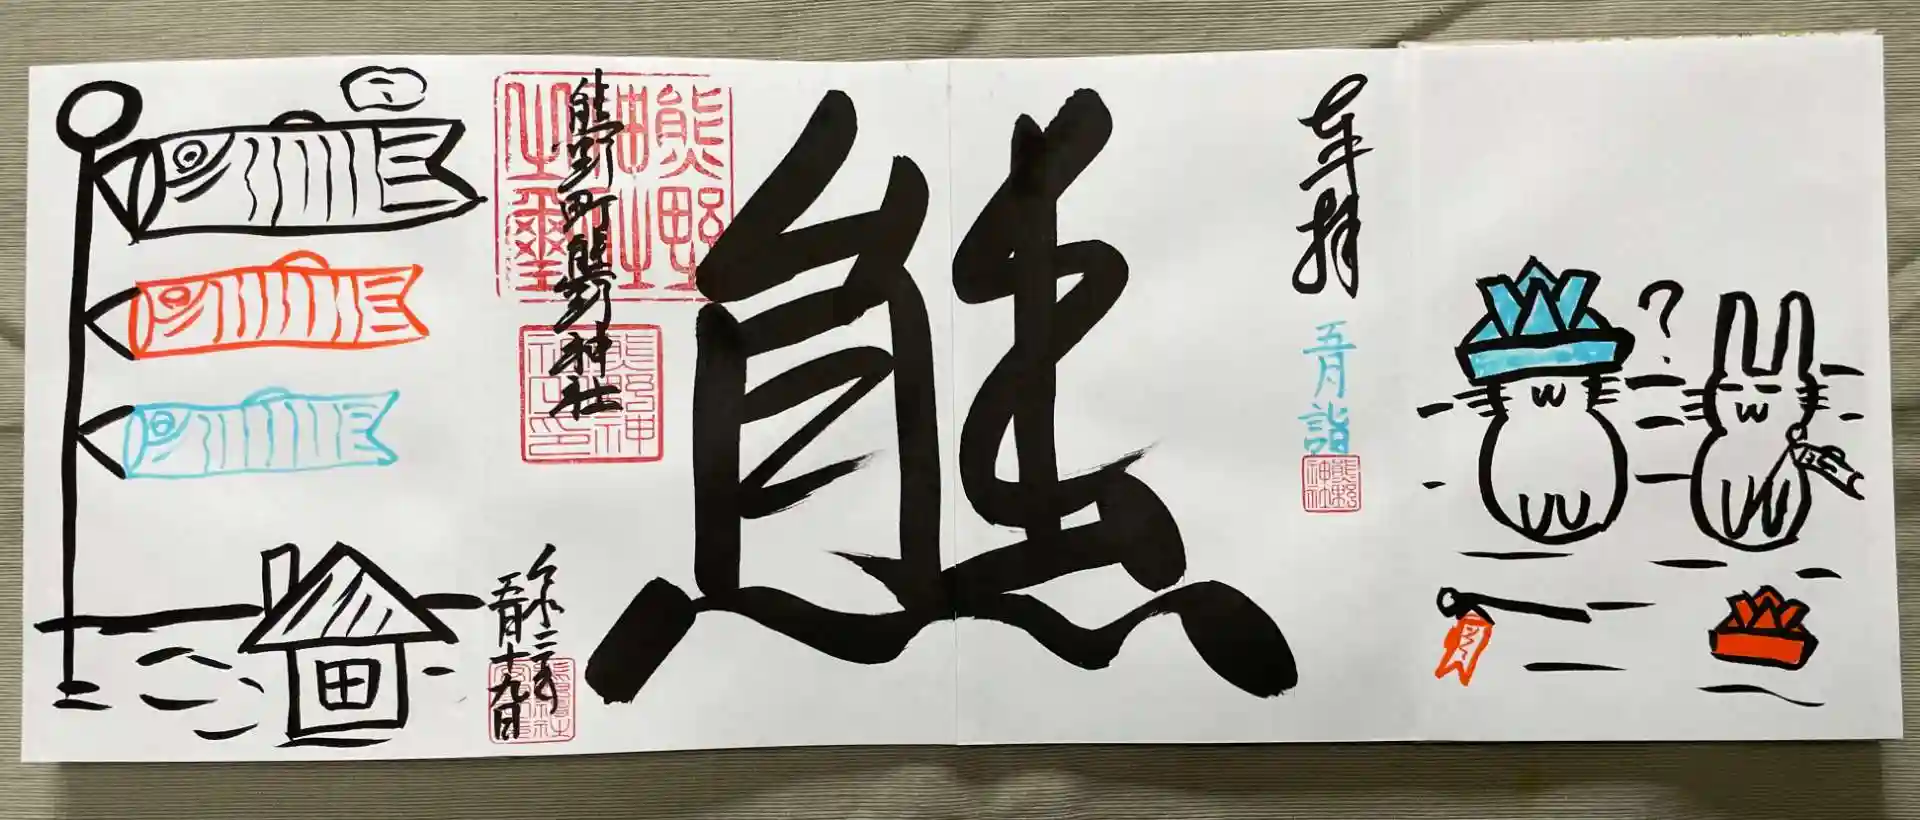 ?
奉拝
五月詣
熊野
神社
熊
熊野町熊野神社
熊野
神社
之璽
熊野神
社之印
令和二年
五月十九日